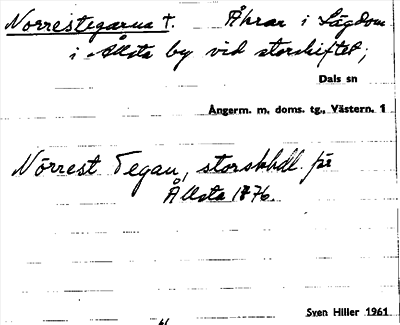 Norrestegarna †. Åkrar i Lågdom
i Ållsta by vid storskiftet;
Dals sn
Ångerm. m. doms. tg., Västern. 1
Nörrest Tegan, storskhdl. på
Ållsta 1876.
Sven Hiller 1961